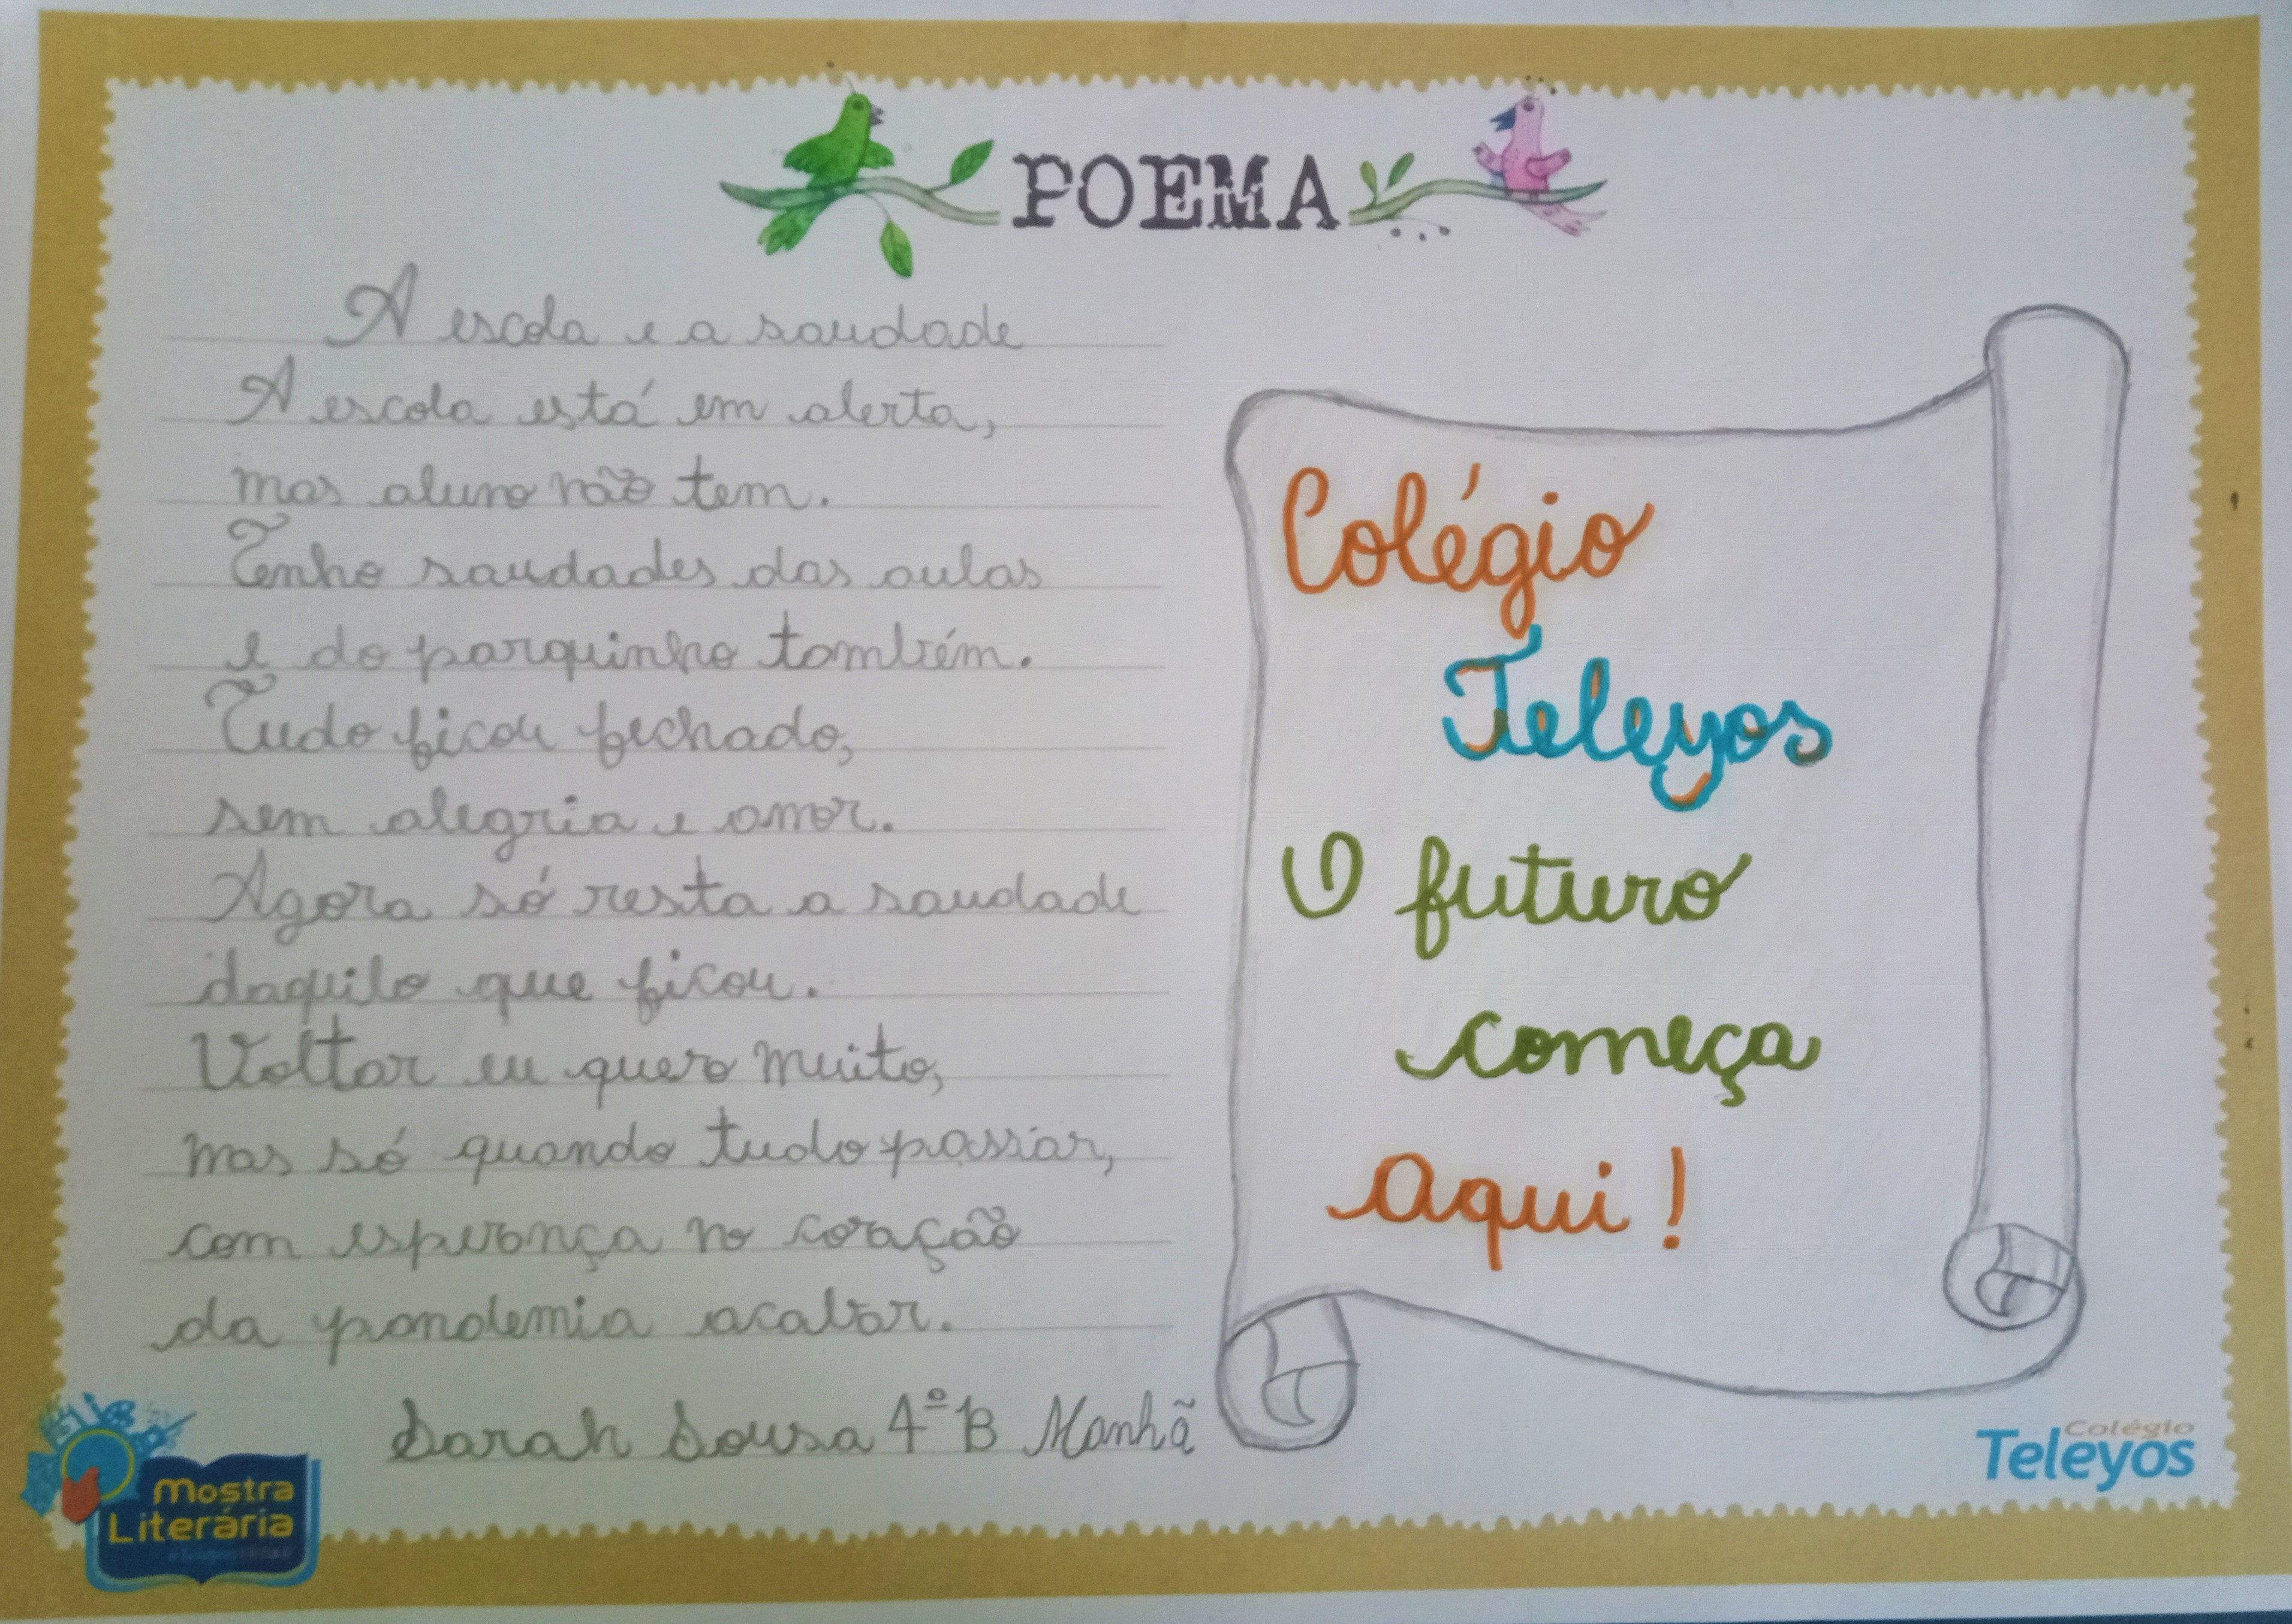 POEMA
A escola e a saudade
A escola está em alerta,
mas aluno não tem.
Tenho saudades das aulas
e do parquinho também.
Tudo ficou fechado,
sem alegria e amor.
Agora só resta a saudade
daquilo que ficou.
Voltar eu quero muito,
mas só quando tudo passar,
com esperança no coração
da pandemia acabar.
Sarah Sousa 4º B Manhã
Colégio
Teleyos
O futuro
começa
aqui!
Mostra
Literária
Colégio
Teleyos